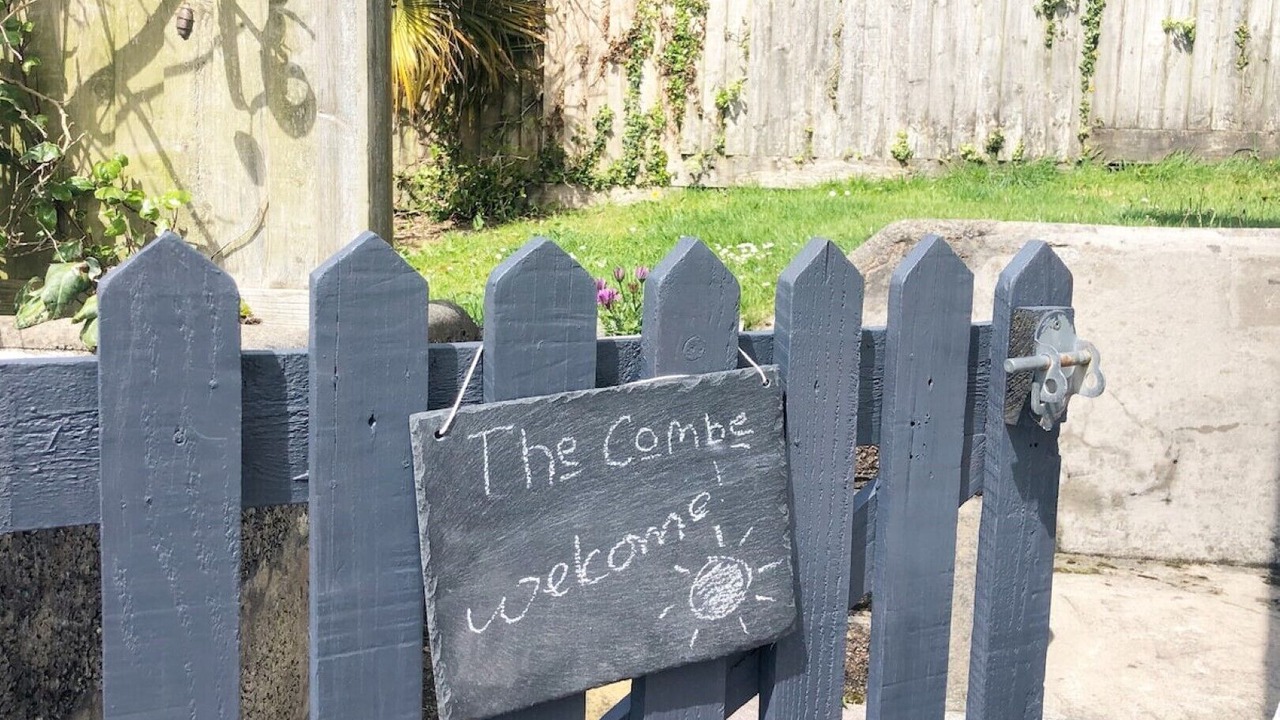 The Combe
welcome!